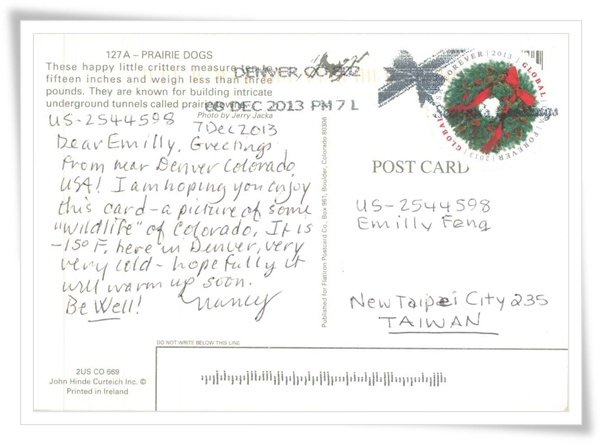 127A – PRAIRIE DOGS
These happy little critters measure ten to
fifteen inches and weigh less than three
pounds. They are known for building intricate
underground tunnels called prairie towns.
Photo by Jerry Jacka
DENVER CO 802
08 DEC 2013 PM 7 L
FOREVER | 2013 | GLOBAL
US-2544598
7 Dec 2013
Dear Emilly, Greetings
from near Denver Colorado
USA! I am hoping you enjoy
this card - a picture of some
"wildlife" of Colorado. It is
-15° F. here in Denver, very
very cold - hopefully it
will warm up soon.
Be Well! Nancy
Published for Flatiron Postcard Co. Box 961, Boulder, Colorado 80306
POST CARD
US-2544598
Emilly Feng
New Taipei City 235
TAIWAN
DO NOT WRITE BELOW THIS LINE
2US CO 669
John Hinde Curteich Inc. ©
Printed in Ireland